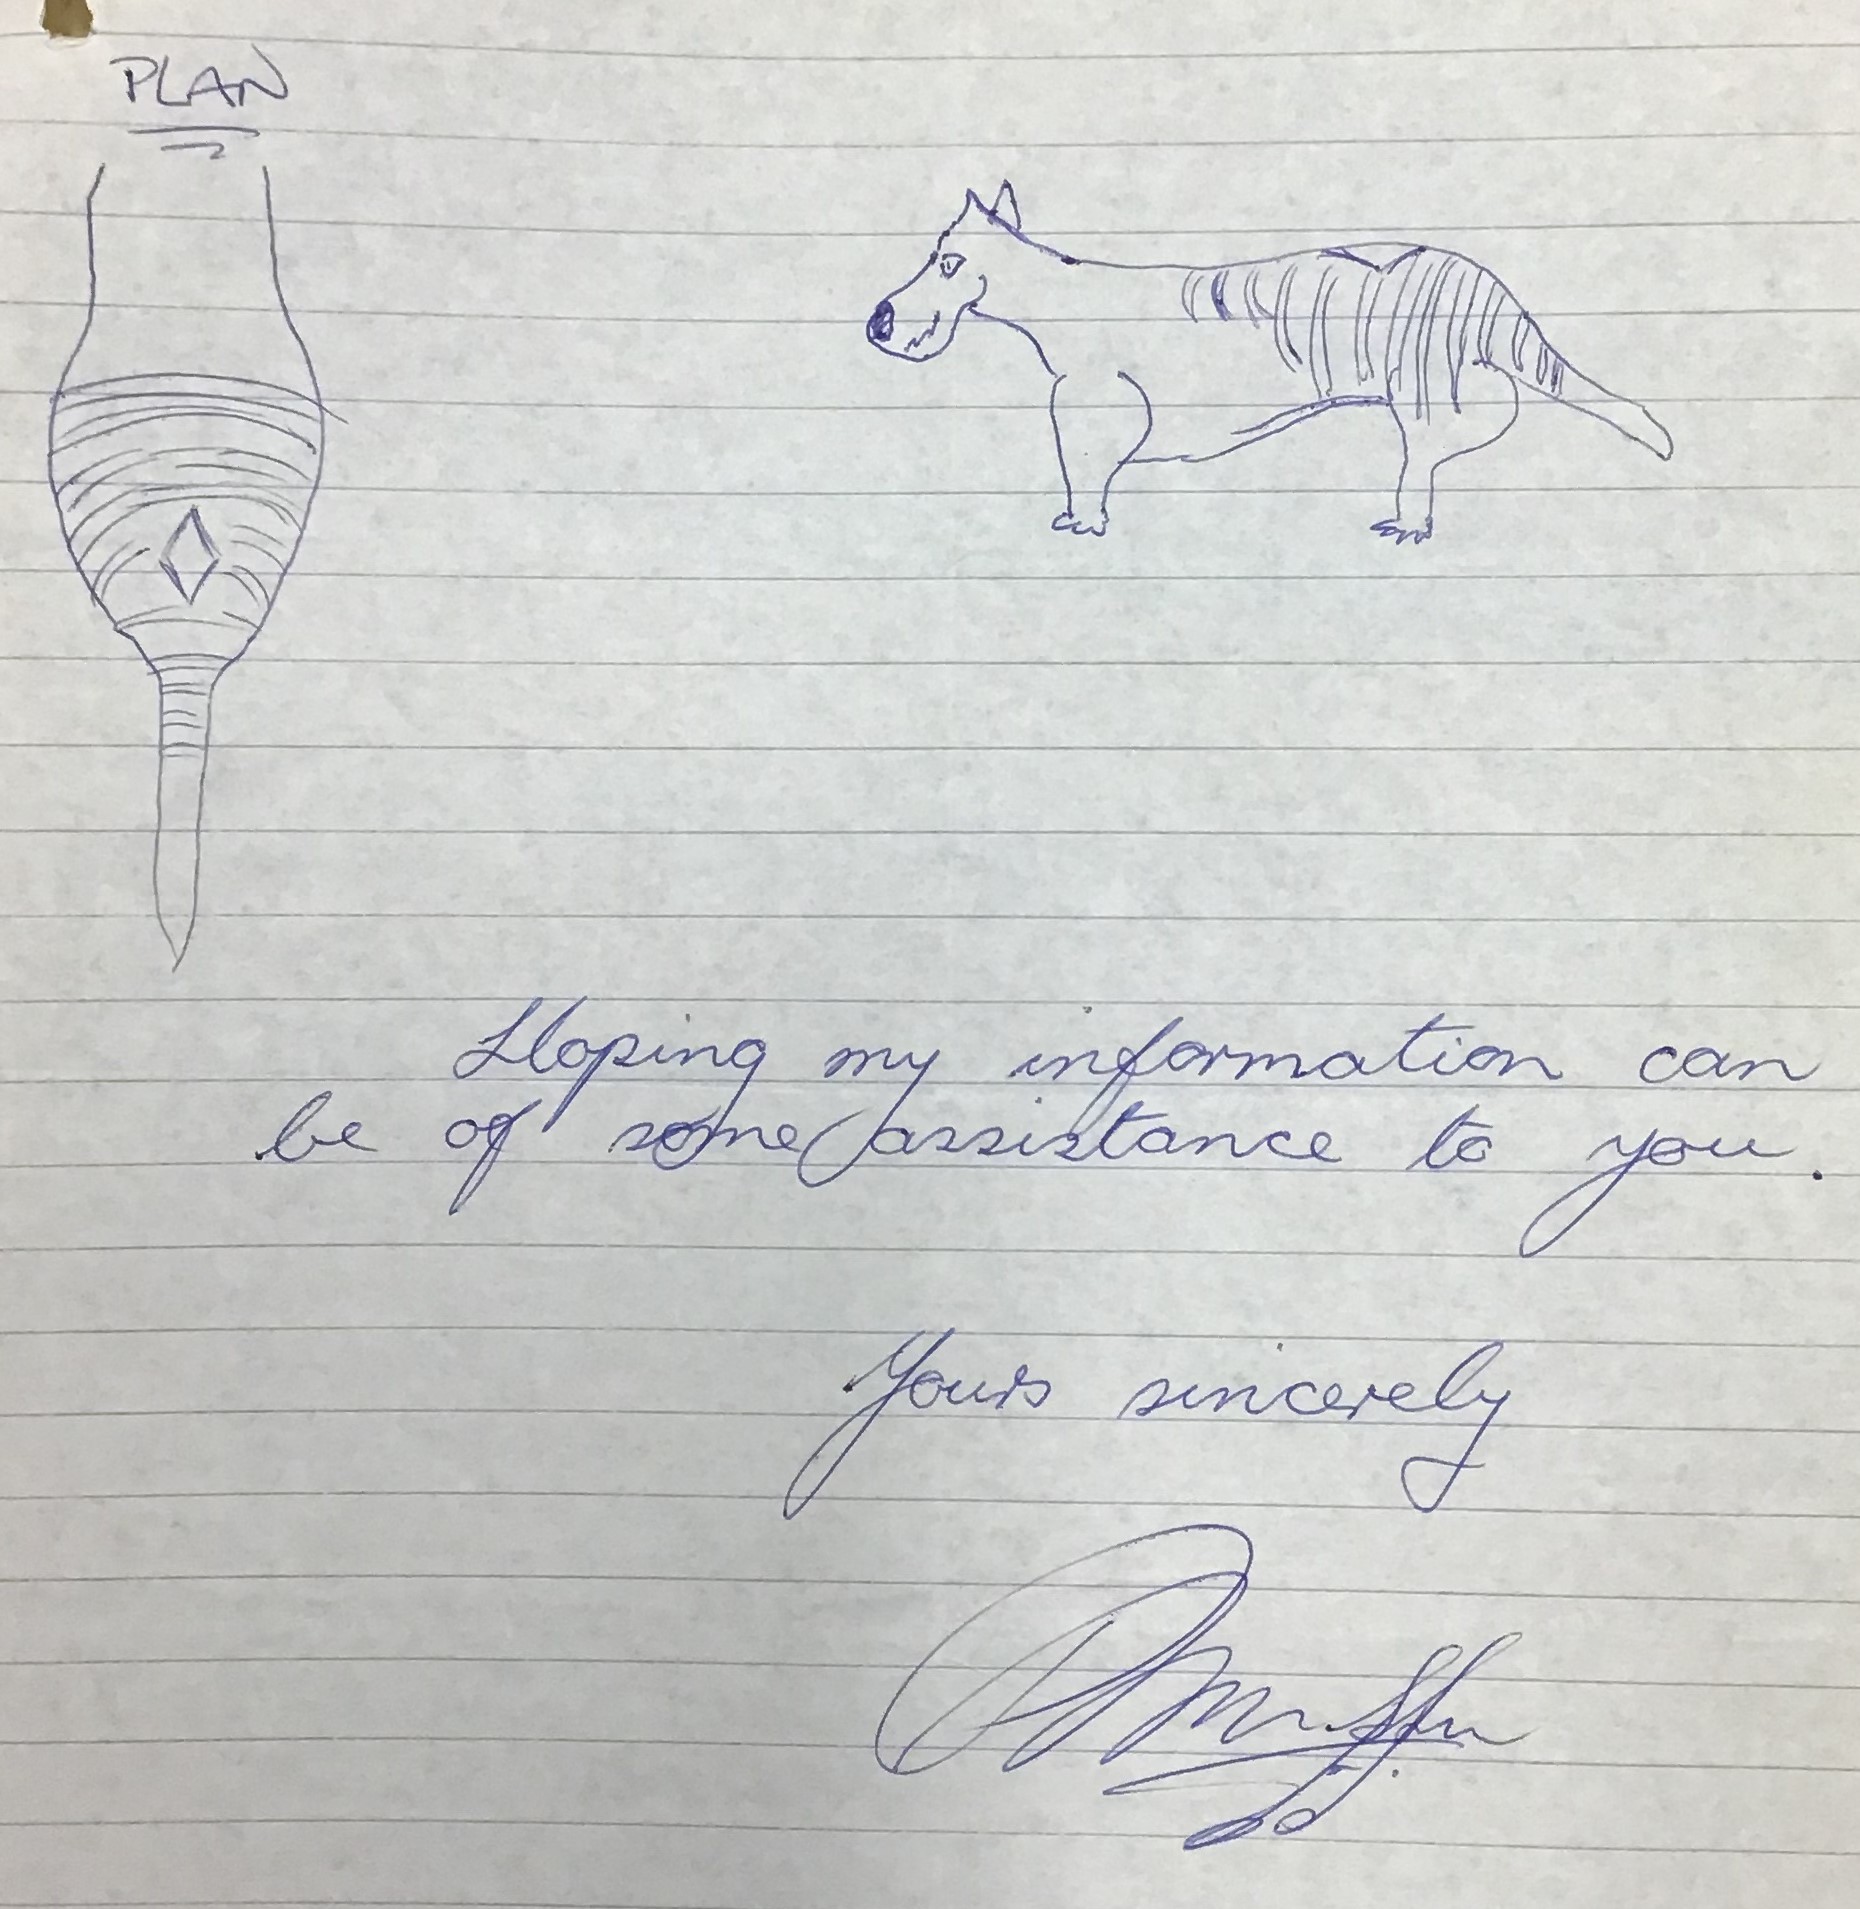 PLAN
Hoping my information can
be of some assistance to you.
Yours sincerely